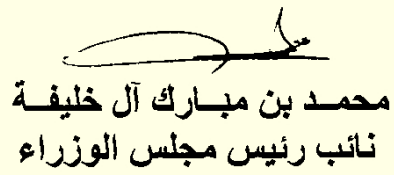 محمـد بن مبــارك آل خليفــة
نائب رئيس مجلس الوزراء